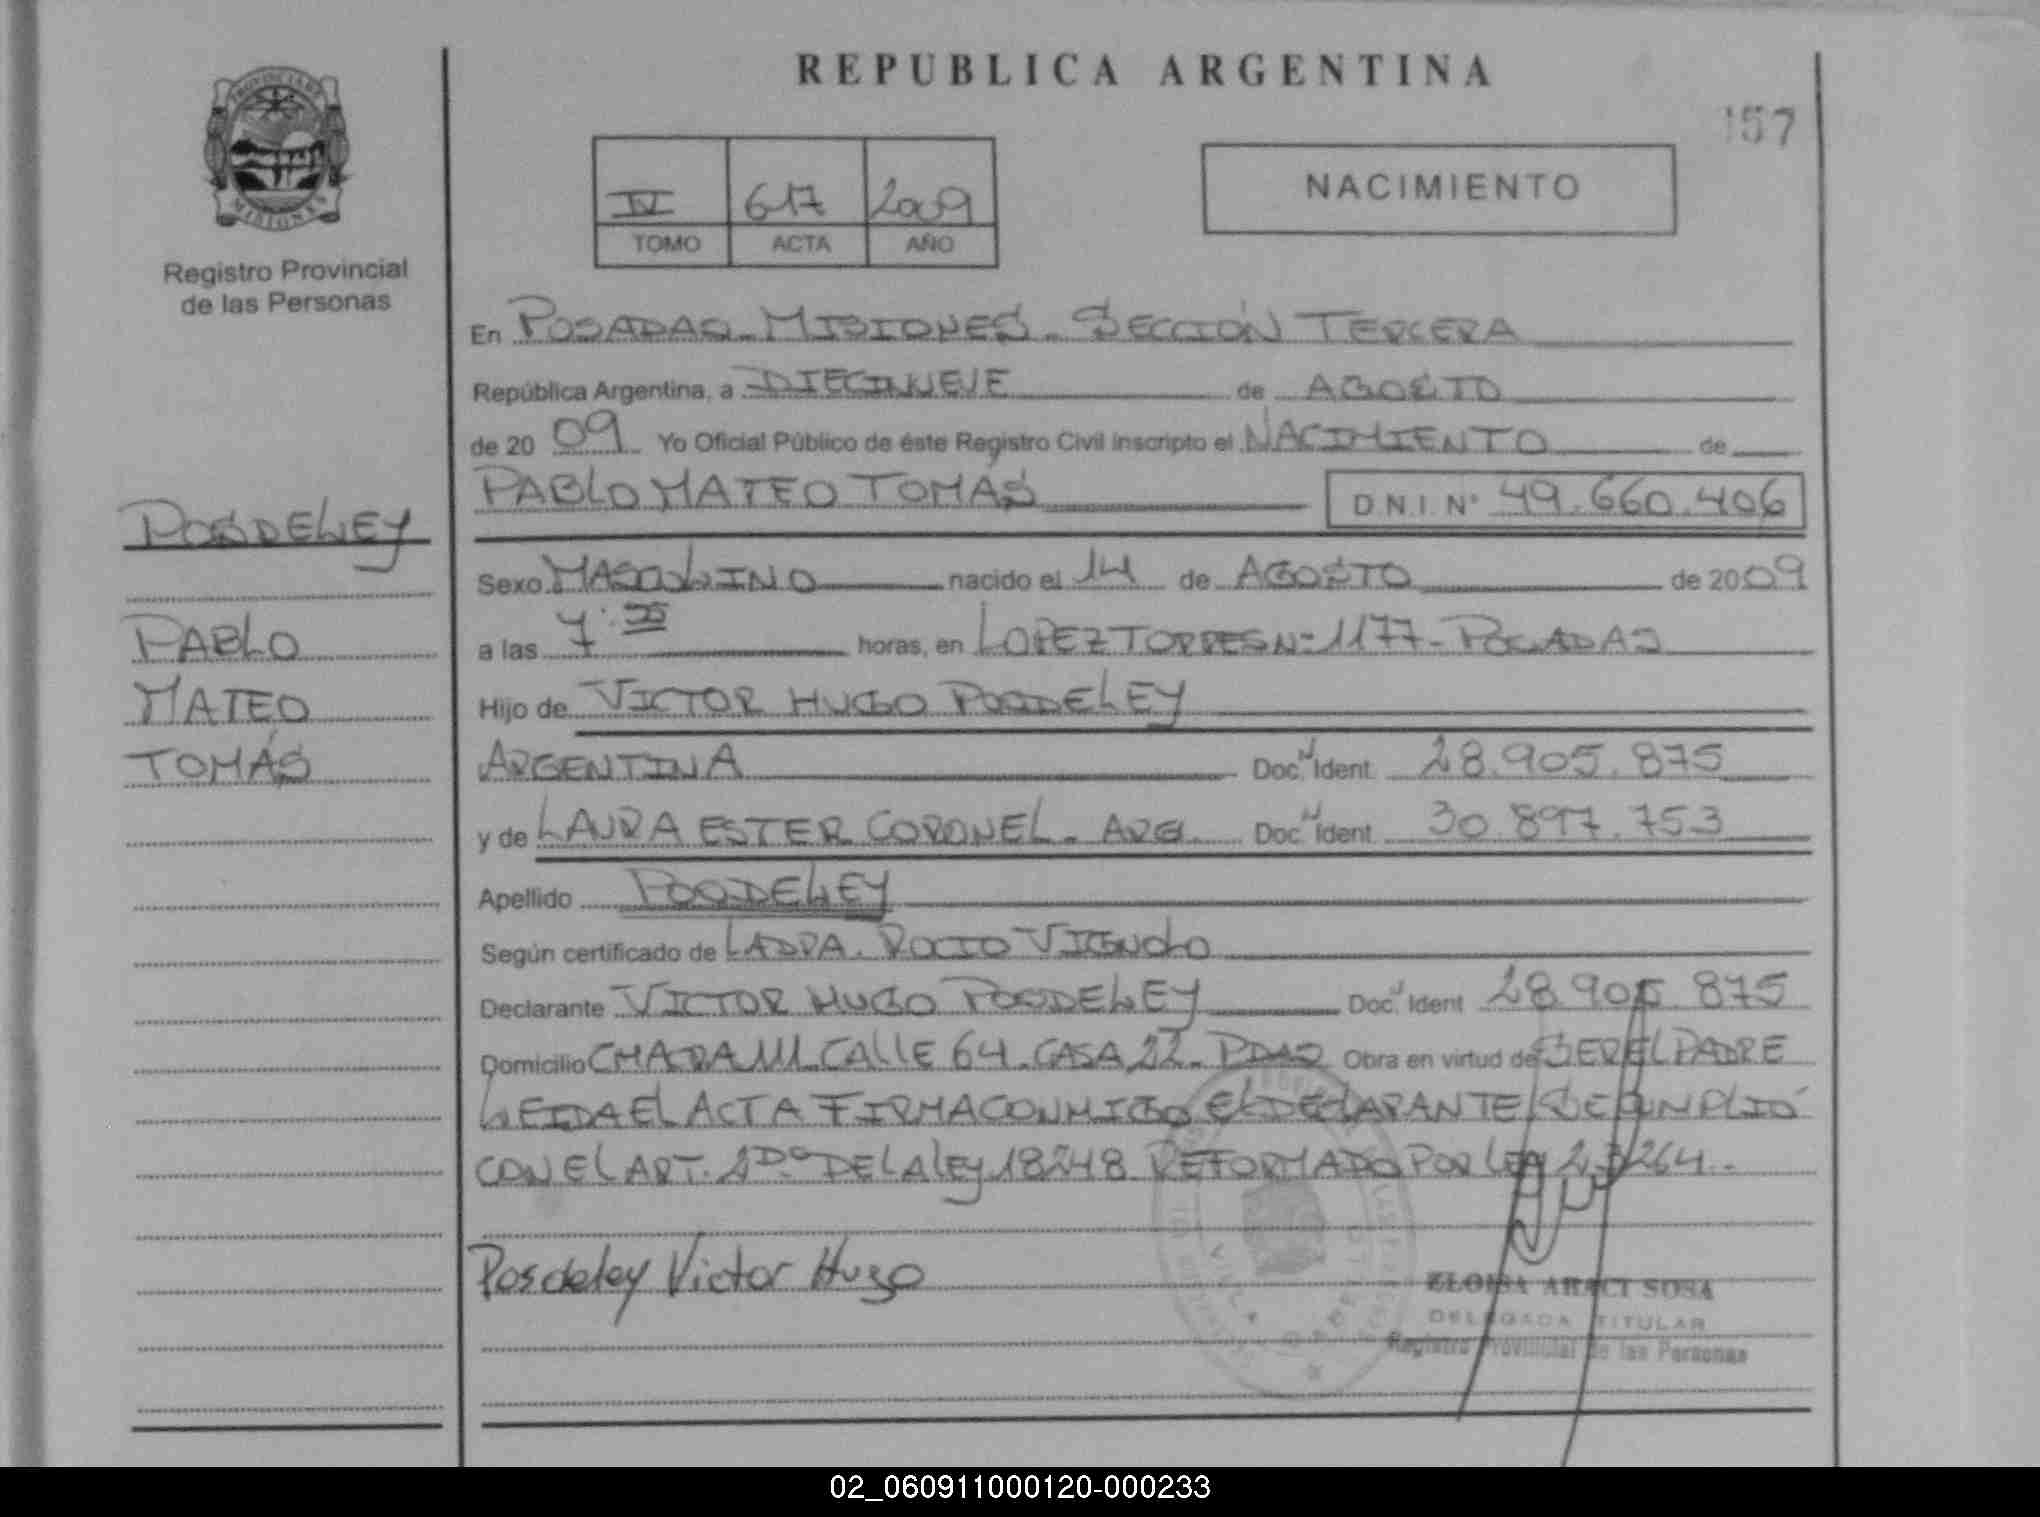 REPUBLICA ARGENTINA
157
PROVINCIA DE
MISIONES
Registro Provincial
de las Personas
IV 617 2009
TOMO ACTA AÑO
NACIMIENTO
En POSADAS - MISIONES - SECCIÓN TERCERA
República Argentina, a DIECINUEVE de AGOSTO
de 20 09 Yo Oficial Público de éste Registro Civil inscripto el NACIMIENTO de
PABLO MATEO TOMÁS D.N.I. Nº 49.660.406
POSDELEY
Sexo MASCULINO nacido el 14 de AGOSTO de 2009
PABLO
a las 7: horas, en LOPEZ TORRES Nº 1177 - POSADAS
MATEO
Hijo de VICTOR HUGO POSDELEY
TOMÁS
ARGENTINA Doc. N Ident. 28.905.875
y de LAURA ESTER CORONEL - ARG. Doc. N Ident. 30.897.753
Apellido POSDELEY
Según certificado de LA DRA. ROCIO VIGNOLO
Declarante VICTOR HUGO POSDELEY Doc. N Ident. 28.905.875
Domicilio CHACRA 111 CALLE 64 - CASA 22 - PDAS Obra en virtud de SER EL PADRE
LEIDA EL ACTA FIRMA CONMIGO EL DECLARANTE SE CUMPLIÓ
CON EL ART. 2DO DE LA LEY 18248 REFORMADO POR LEY 23264.-
Posdeley Victor Hugo
ELOISA ARACI SOSA
DELEGADA TITULAR
Registro Provincial de las Personas
02_060911000120-000233